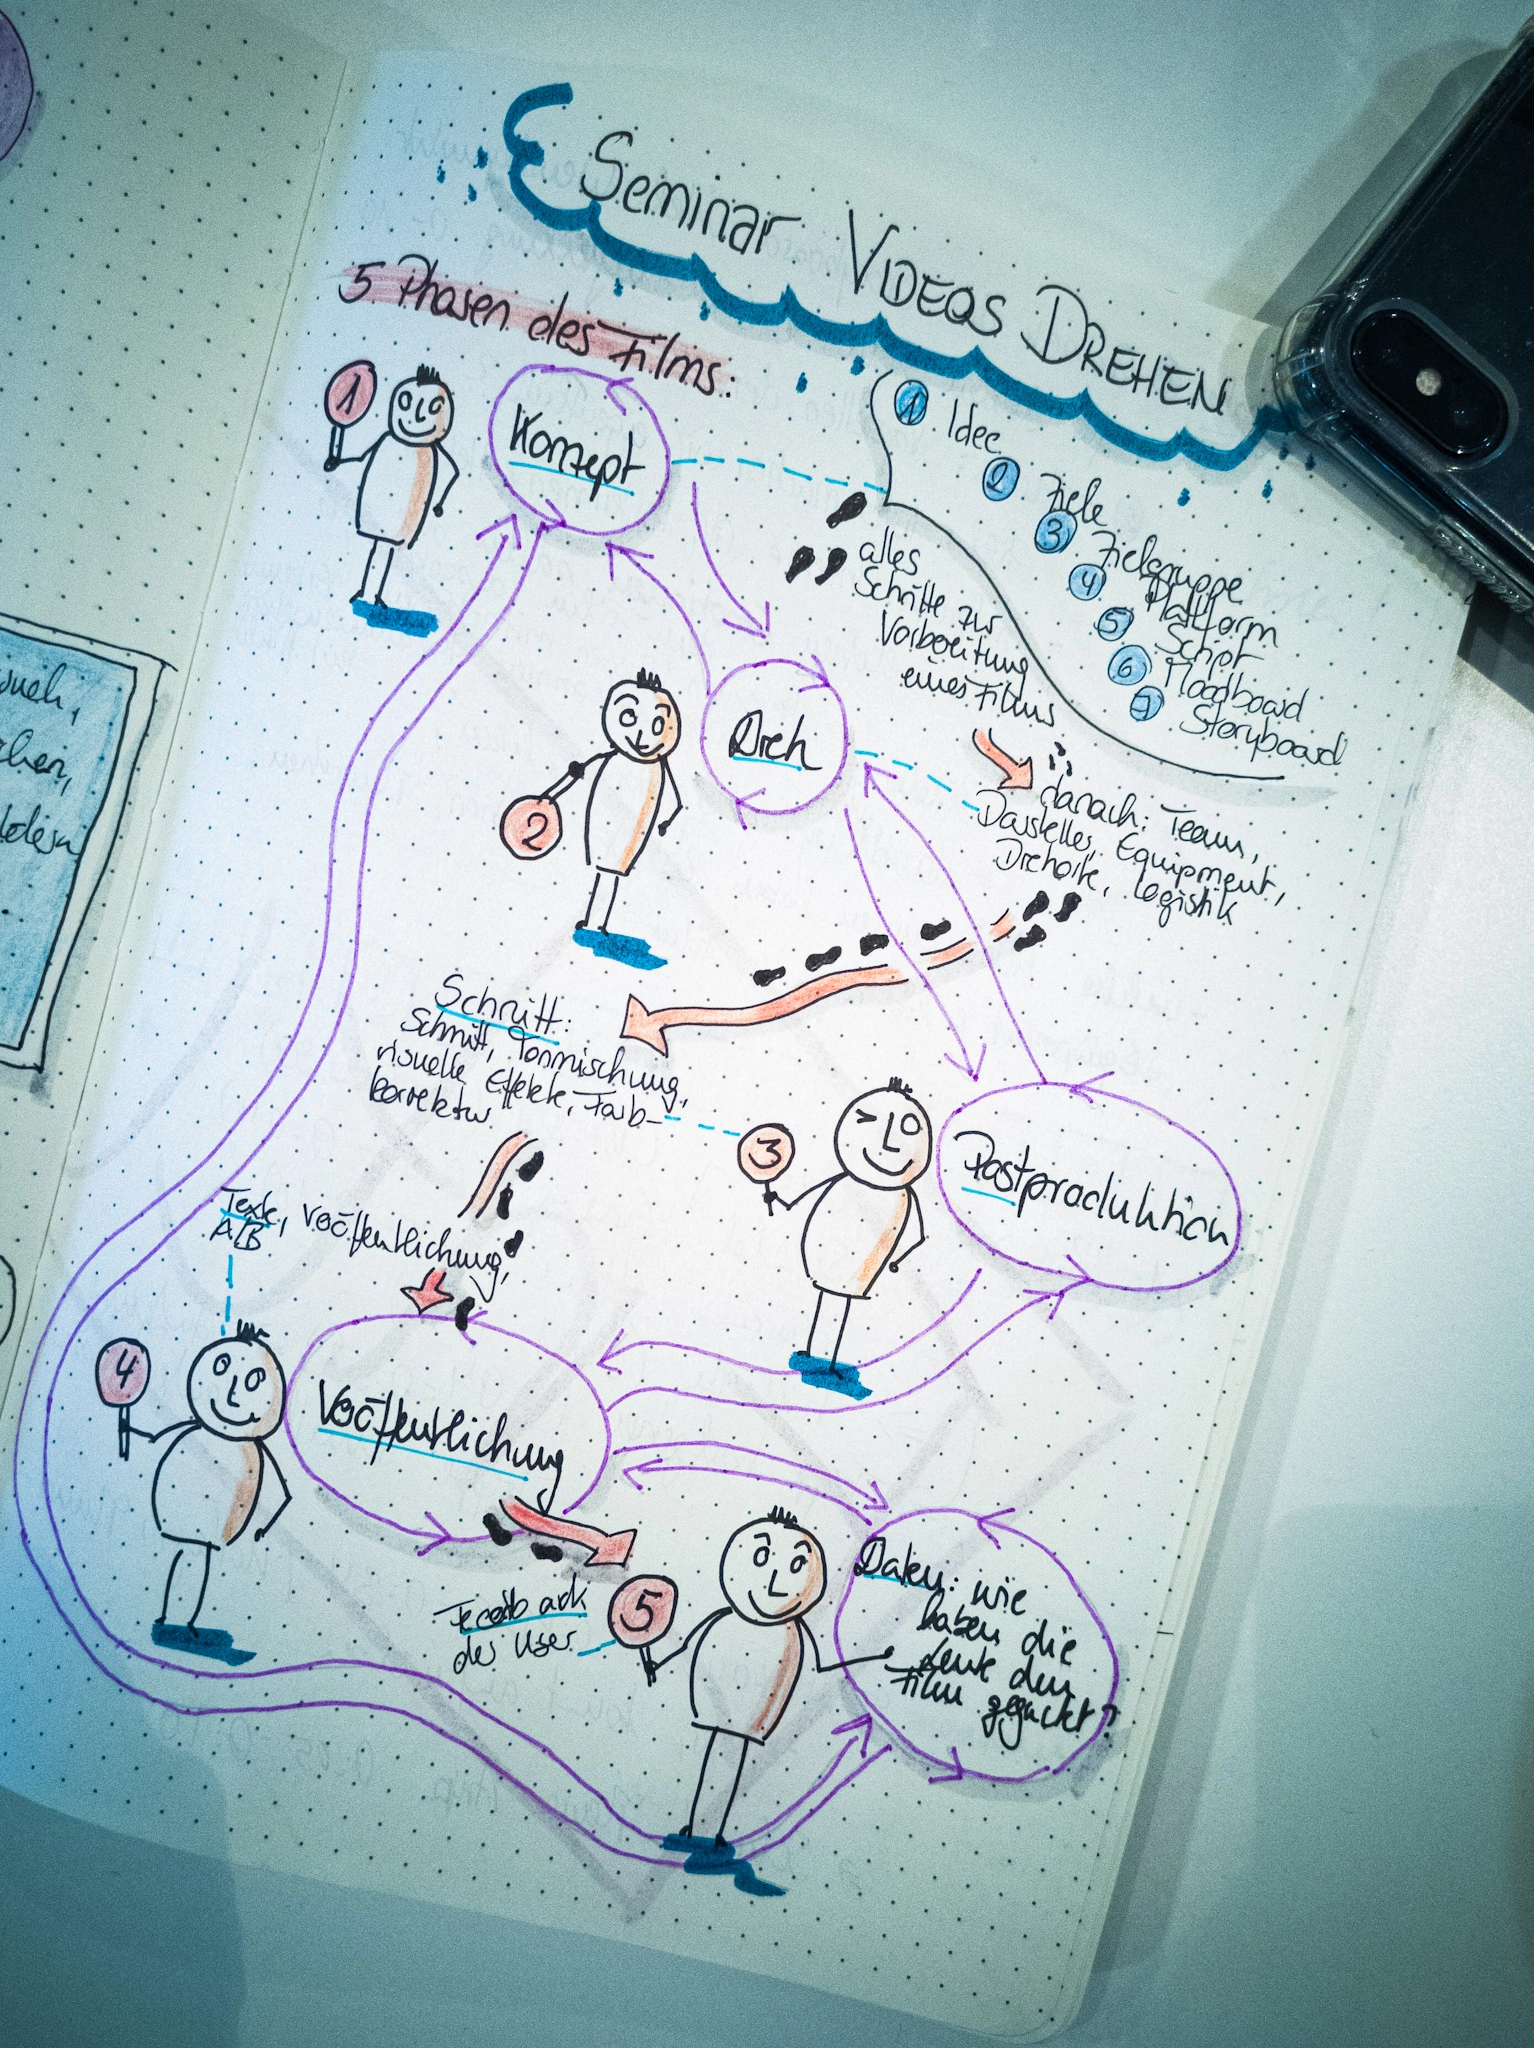 Seminar VIDEOS DREHEN
5 Phasen des Films:
1
Konzept
1 Idee
2 Ziele
3 Zielgruppe
4 Plattform
5 Script
6 Moodboard
7 Storyboard
alles
Schritte zur
Vorbereitung
eines Films
2
Dreh
danach: Team,
Darsteller, Equipment,
Drehorte, Logistik
Schnitt:
Schnitt, Tonmischung,
visuelle Effekte, Farb-
korrektur
3
Postproduktion
Texte, Veröffentlichung,
A/B
4
Veröffentlichung
Feedback
der User
5
Daten: wie
haben die
Leute den
Film geguckt?